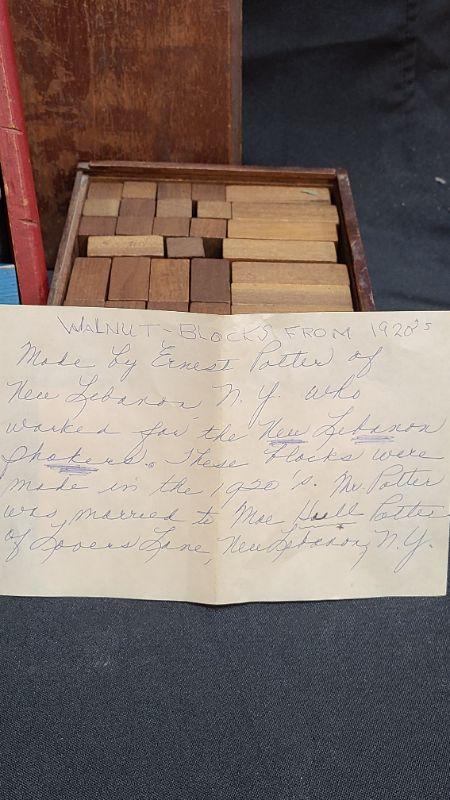 WALNUT-BLOCKS FROM 1920's
Made by Ernest Potter of
New Lebanon, N.Y. who
worked for the New Lebanon
Shakers. These blocks were
made in the 1920's. Mr. Potter
was married to Mae Hall Potter
of Lovers Lane, New Lebanon, N.Y.